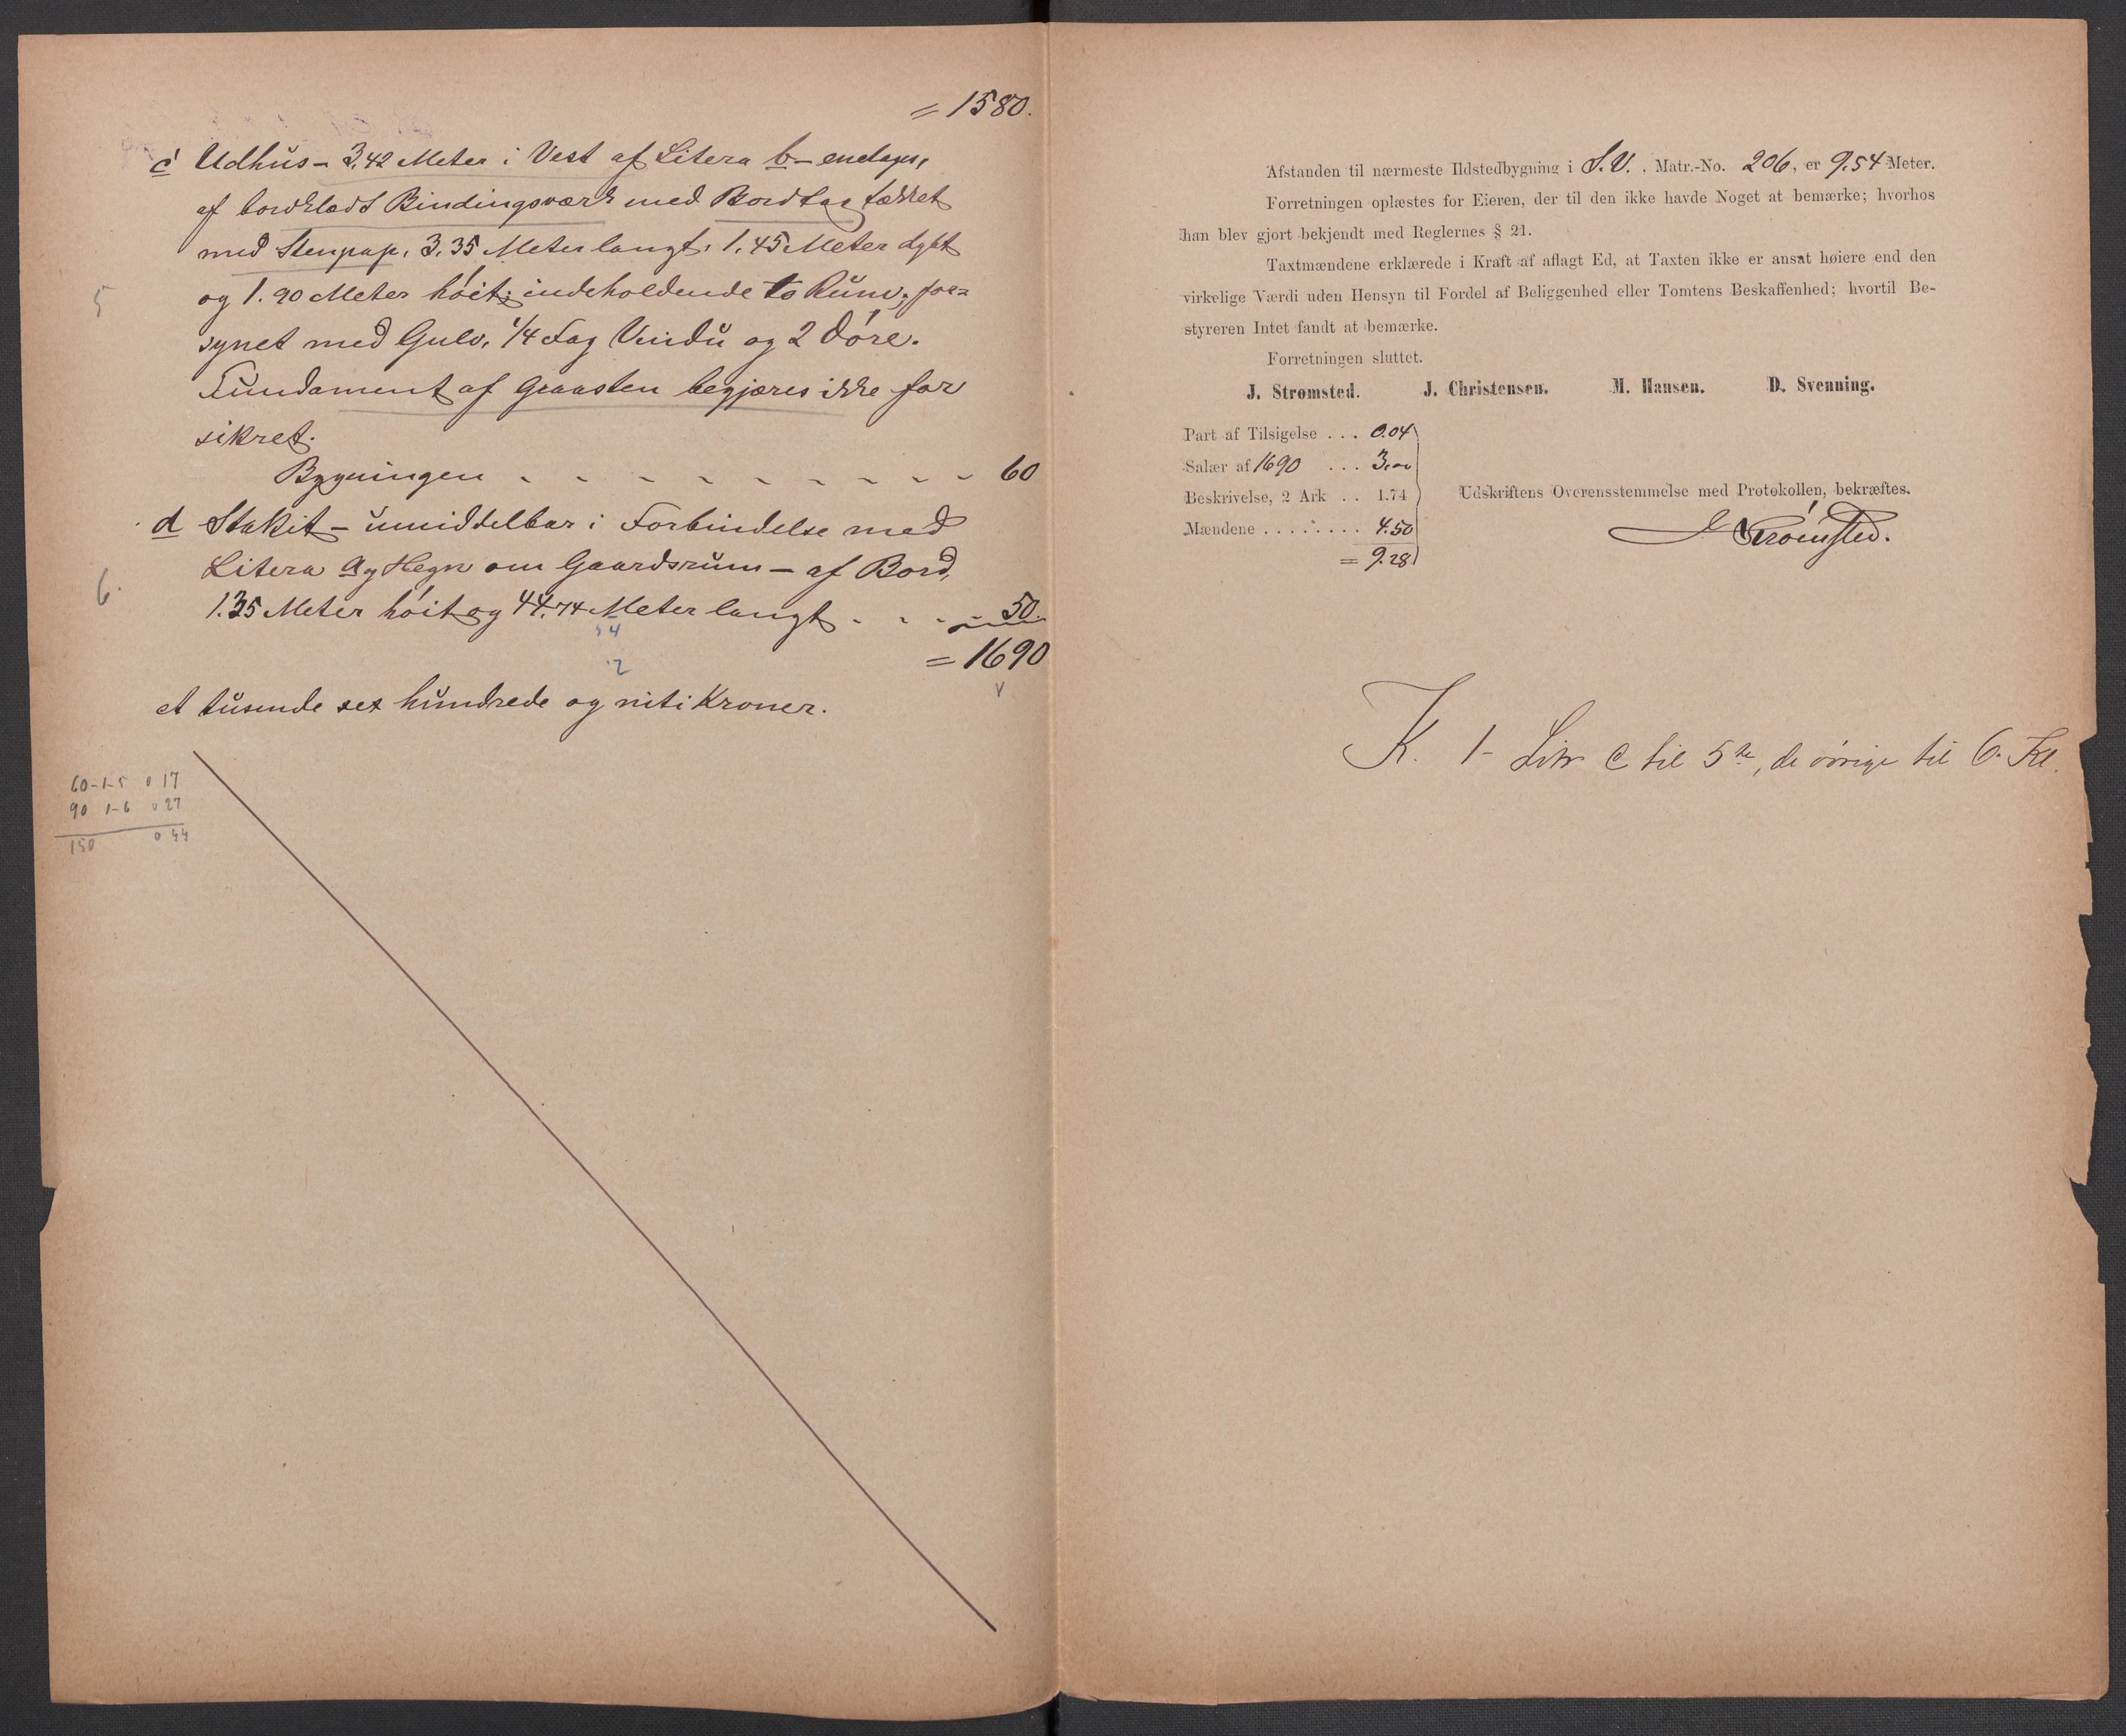 = 1580.
c Udhus – 3.42 Meter i Vest af Litera b – enetages,
af bordklædt Bindingsværk med Bordtag tækket
med Stenpap, 3.35 Meter langt, 1.45 Meter dybt
og 1.90 Meter höit; indeholdende to Rum, for=
5
synet med Gulv, 1/4 Fag Vindu og 2 Döre.
Fundament af Graasten begjæres ikke for
sikret.
Bygningen - - - - - - - - - 60
d Stakit – umiddelbar i Forbindelse med
Litera a og Hegn om Gaardsrum – af Bord,
6.
1.35 Meter höit og 44.74 Meter langt - - - 50.
= 1690
et tusende sex hundrede og niti Kroner.
60-1-5 0 17
90 1-6 0 27
150 0 44
Afstanden til nærmeste Ildstedbygning i S.V. . Matr.-No. 206, er 9.54 Meter.
Forretningen oplæstes for Eieren, der til den ikke havde Noget at bemærke; hvorhos
han blev gjort bekjendt med Reglernes § 21.
Taxtmændene erklærede i Kraft af aflagt Ed, at Taxten ikke er ansat høiere end den
virkelige Værdi uden Hensyn til Fordel af Beliggenhed eller Tomtens Beskaffenhed; hvortil Be-
styreren Intet fandt at bemærke.
Forretningen sluttet.
J. Strømsted. J. Christensen. M. Hansen. D. Svenning.
Part af Tilsigelse . . . 0.04
Salær af 1690 . . . 3.00
Beskrivelse, 2 Ark . . 1.74
Mændene . . . . . . . 4.50
= 9.28
Udskriftens Overensstemmelse med Protokollen, bekræftes.
J Strömsted.
K. 1- Litr c til 5te, de övrige til 6. Kl.